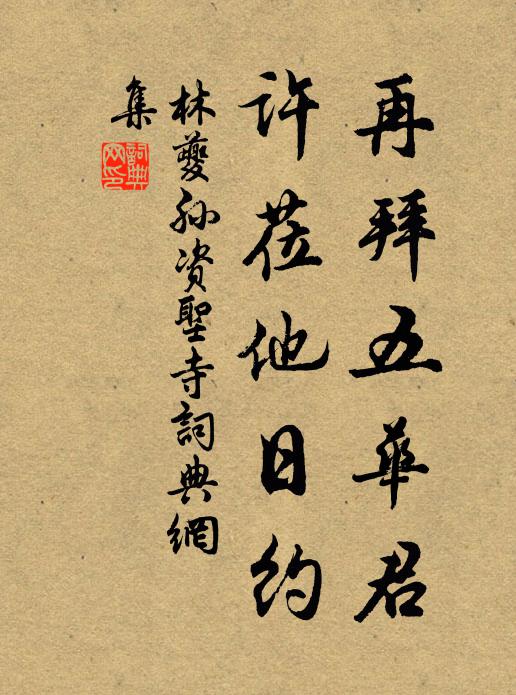 再拜五華君
許莅他日約
林夔孫資聖寺詞典網
集
詞典網印